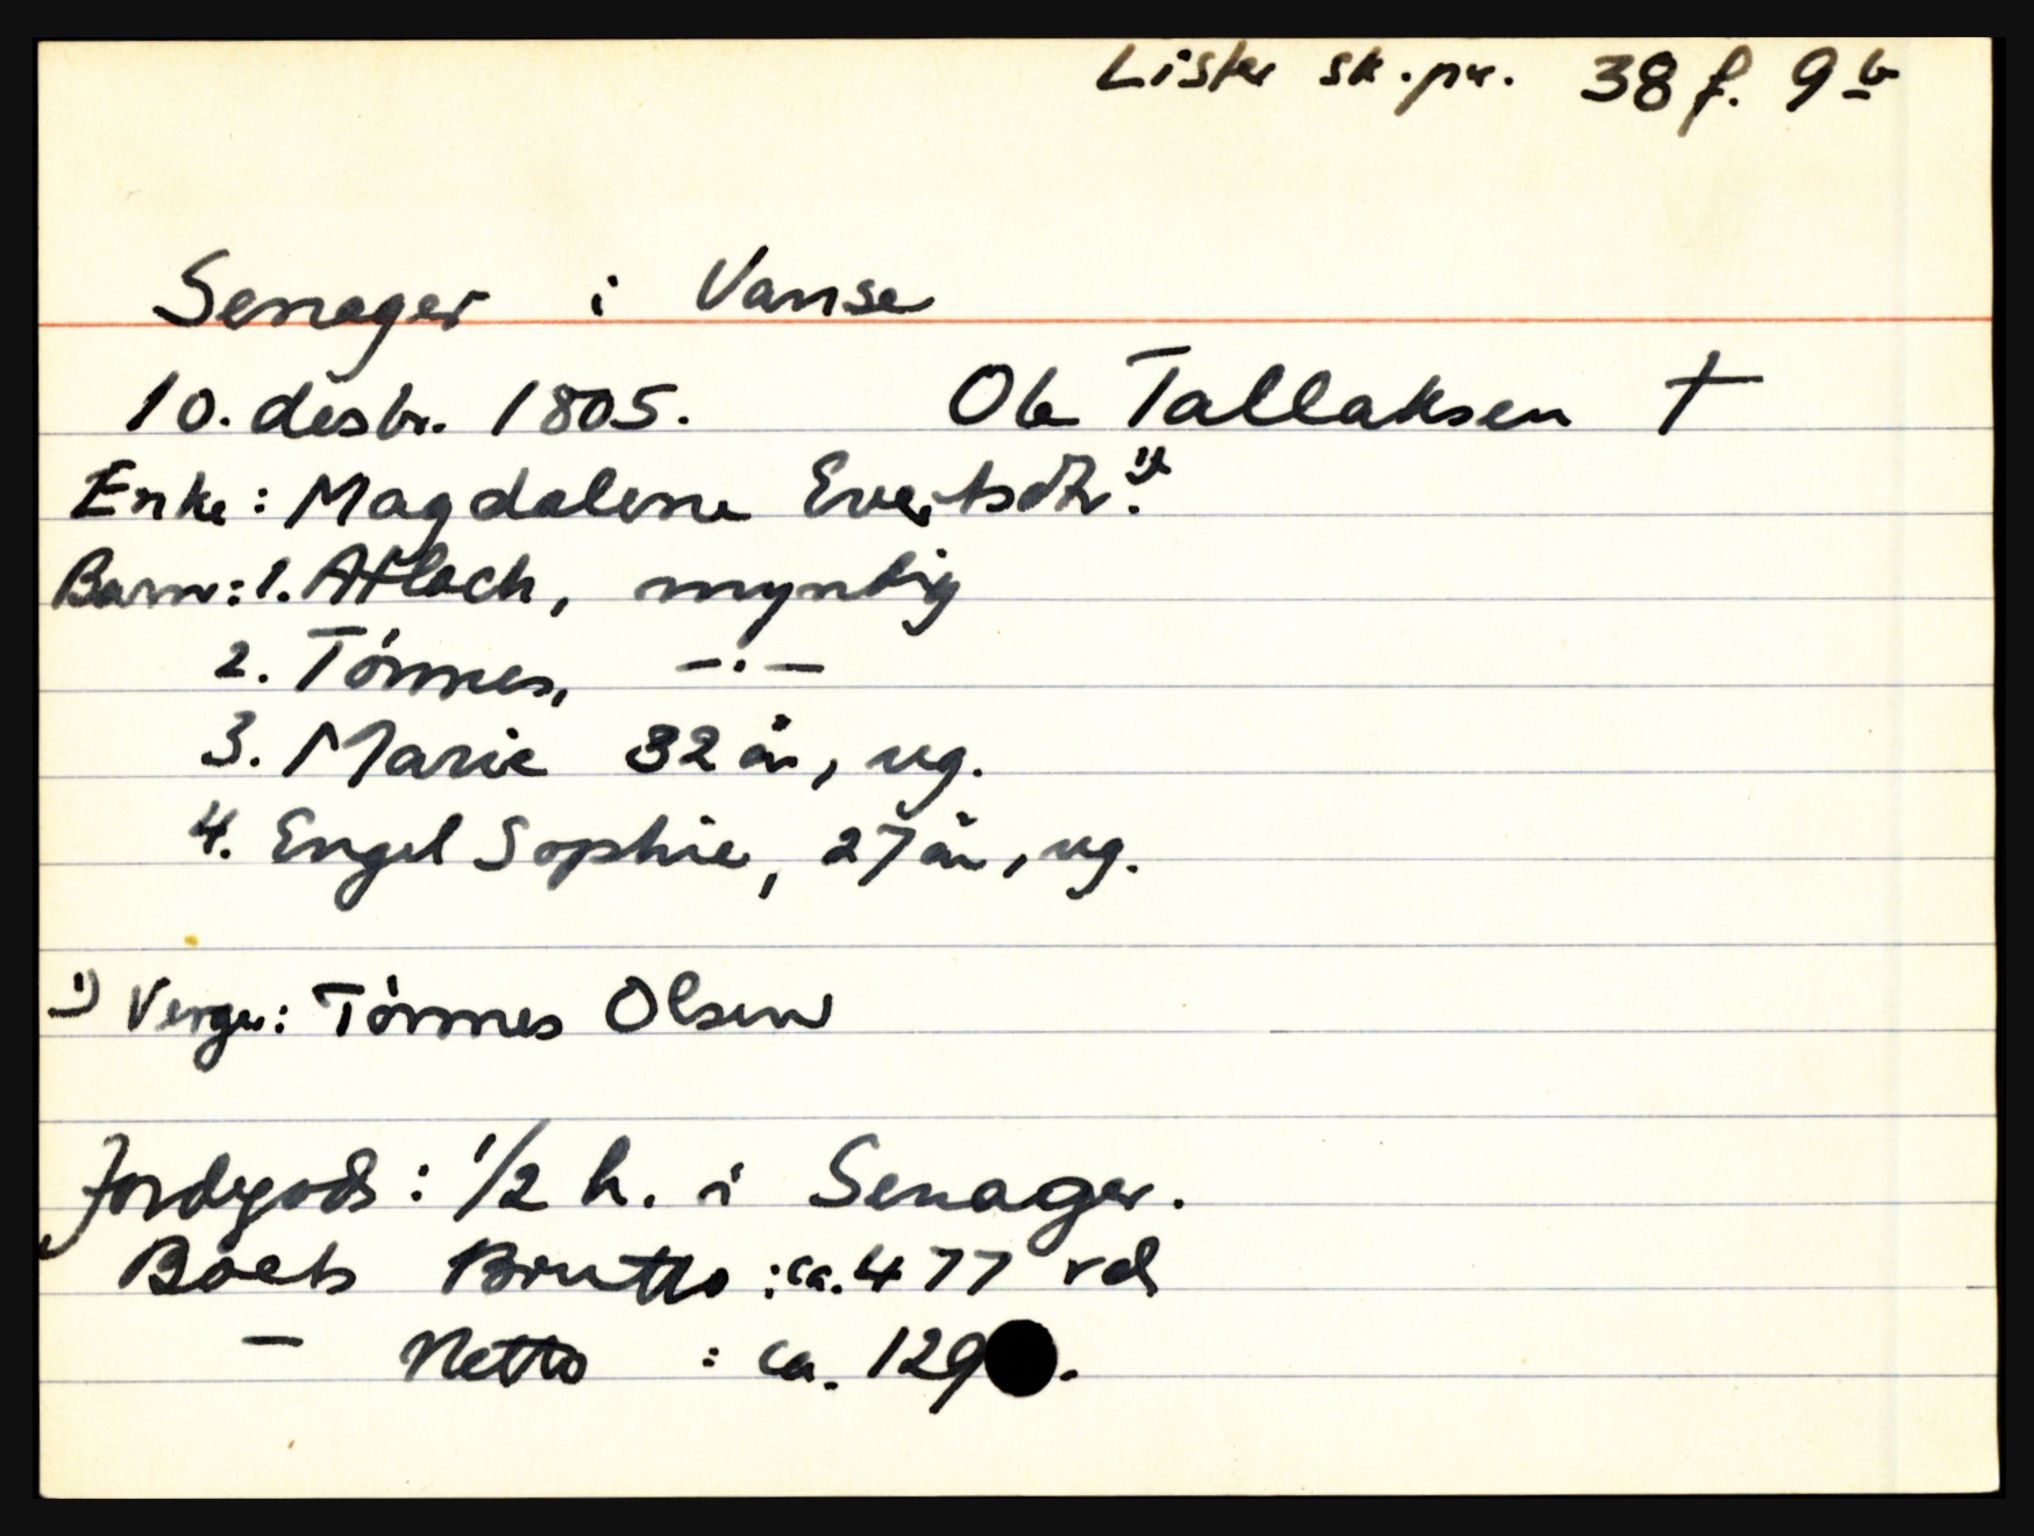 Lister sk.pr. 38 f. 9b
Senager i Vanse
10. desbr. 1805. Ole Tallaksen †
Enke: Magdalene Evertsdtr. 1)
Barn: 1. Atlach, myntig
2. Tónnes, — · —
3. Marie 32 år, ug.
4. Engel Sophie, 27 år, ug.
1) Verge: Tónnes Olsen
Jordegods: 1/2 h. i Senager.
Boets Brutto: ca. 477 rd
— Netto : ca. 129 .